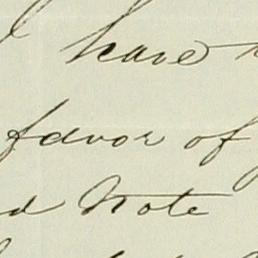 have
favor of
Note